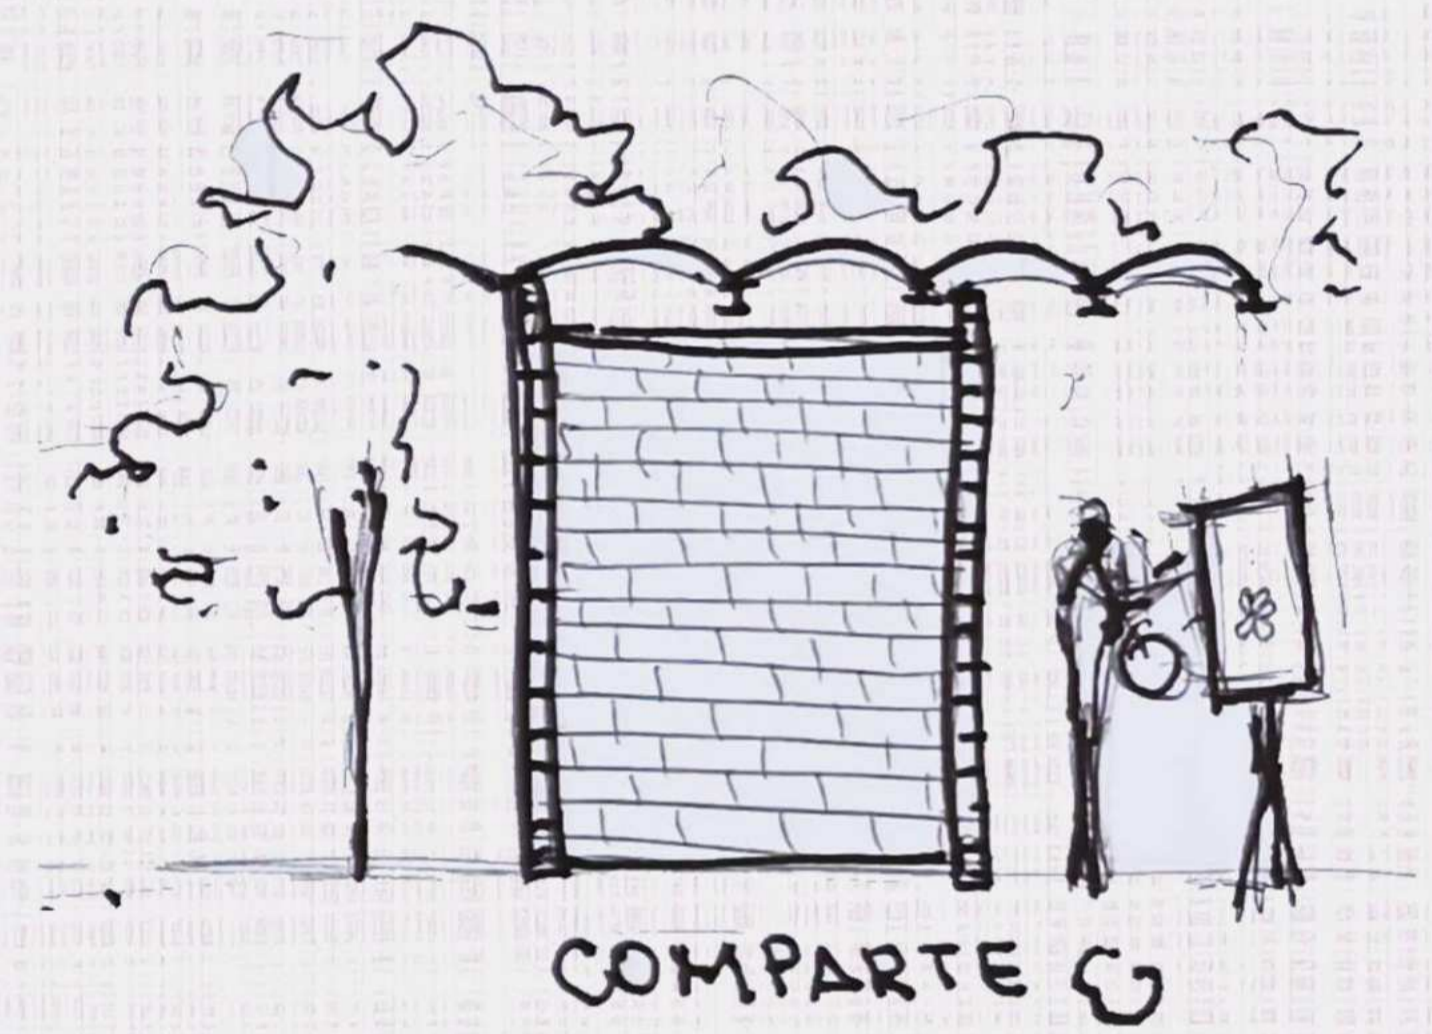 COMPARTE G